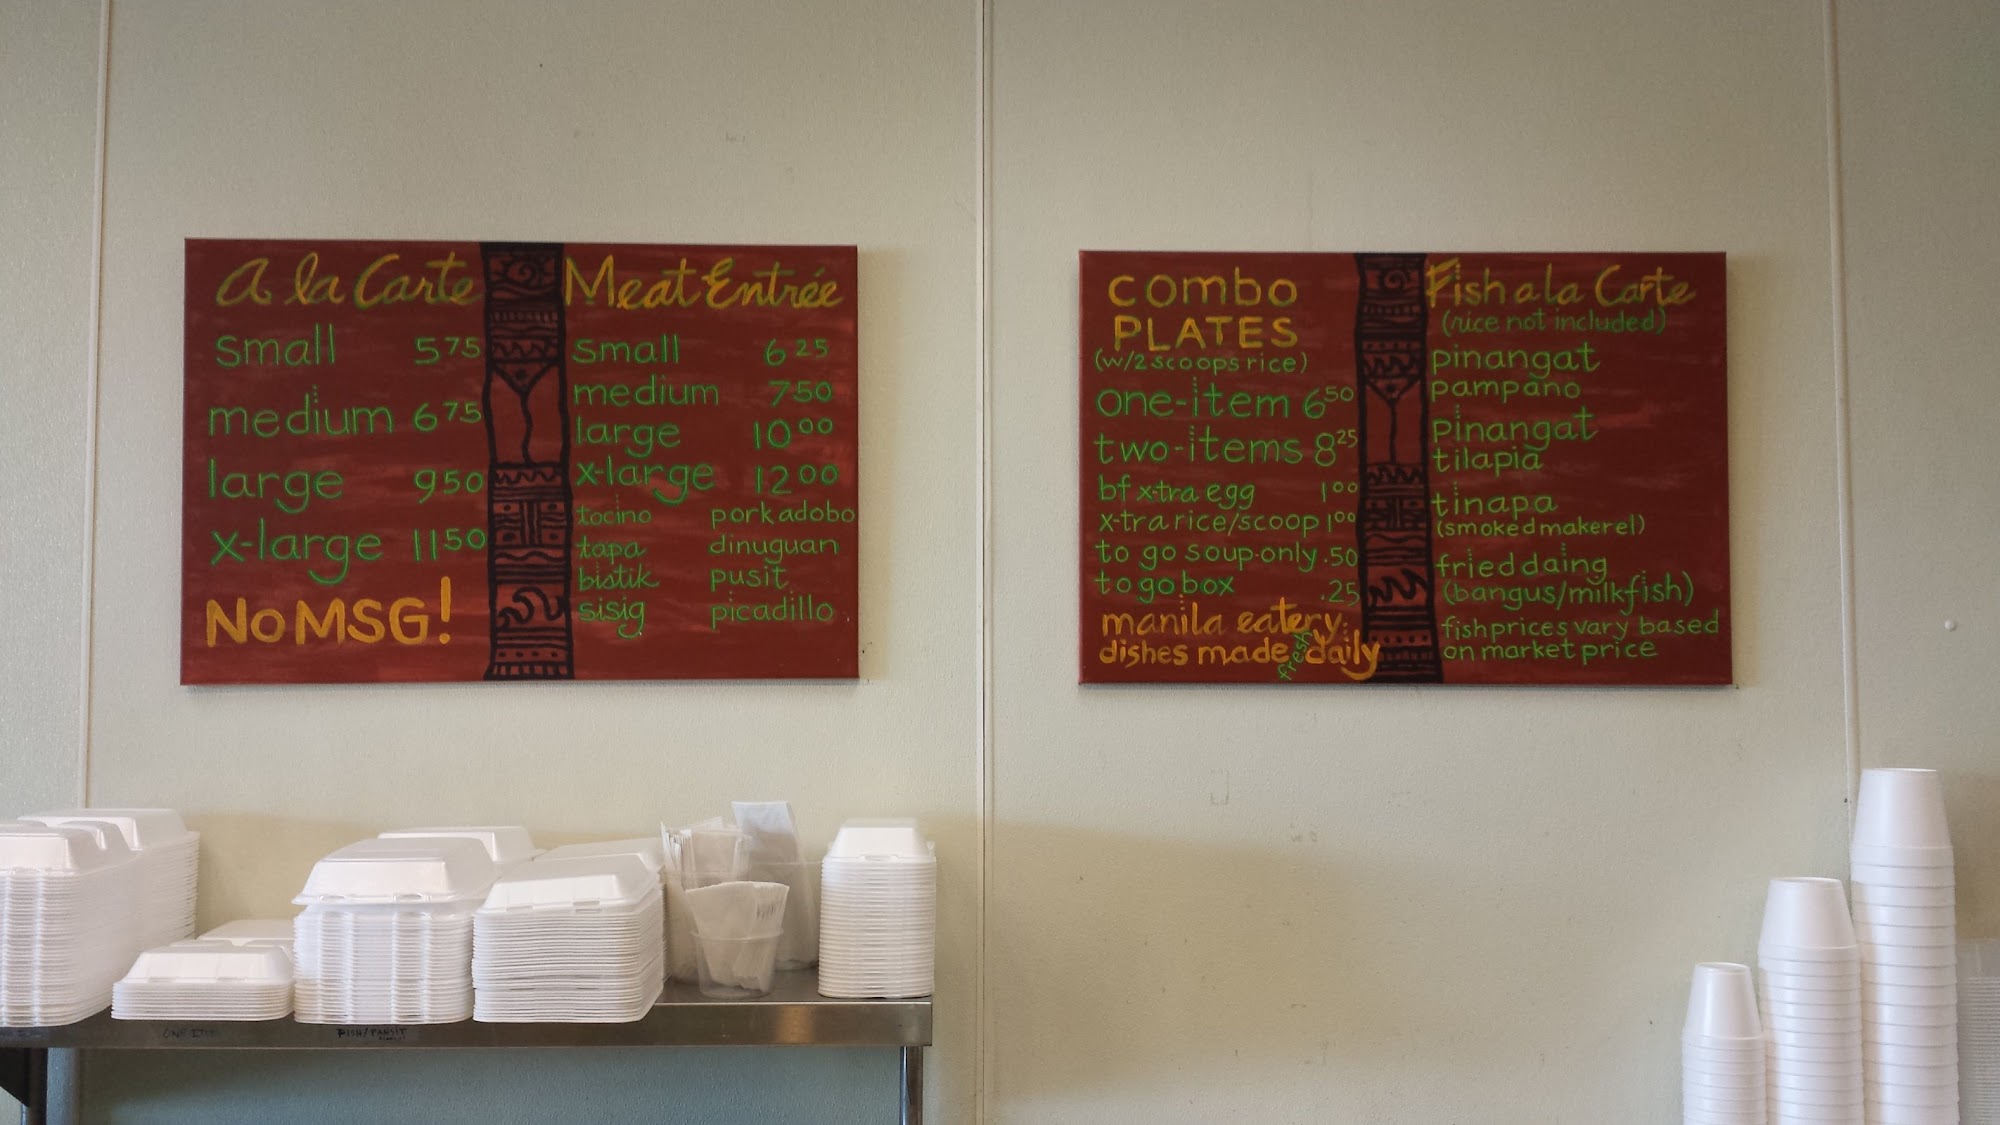 A la Carte
small 5 75
medium 6 75
large 9 50
x-large 11 50
No MSG!
Meat Entrée
small 6 25
medium 7 50
large 10 00
x-large 12 00
tocino pork adobo
tapa dinuguan
bistik pusit
sisig picadillo
COMBO
PLATES
(w/2 scoops rice)
one-item 6 50
two-items 8 25
bf x-tra egg 1 00
x-tra rice/scoop 1 00
to go soup-only .50
to go box .25
manila eatery
dishes made fresh daily
Fish a la Carte
(rice not included)
pinangat
pampano
pinangat
tilapia
tinapa
(smoked makerel)
fried daing
(bangus/milkfish)
fish prices vary based
on market price
ONE ITEM
FISH/PANSIT